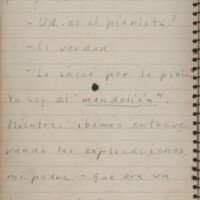 - Ud. es el pianista?
- Es verdad
- Lo saqué por la pinta
Yo soy el "mandolión".
Mientras íbamos entreve
rando las explicaciones,
mi padre - que era un